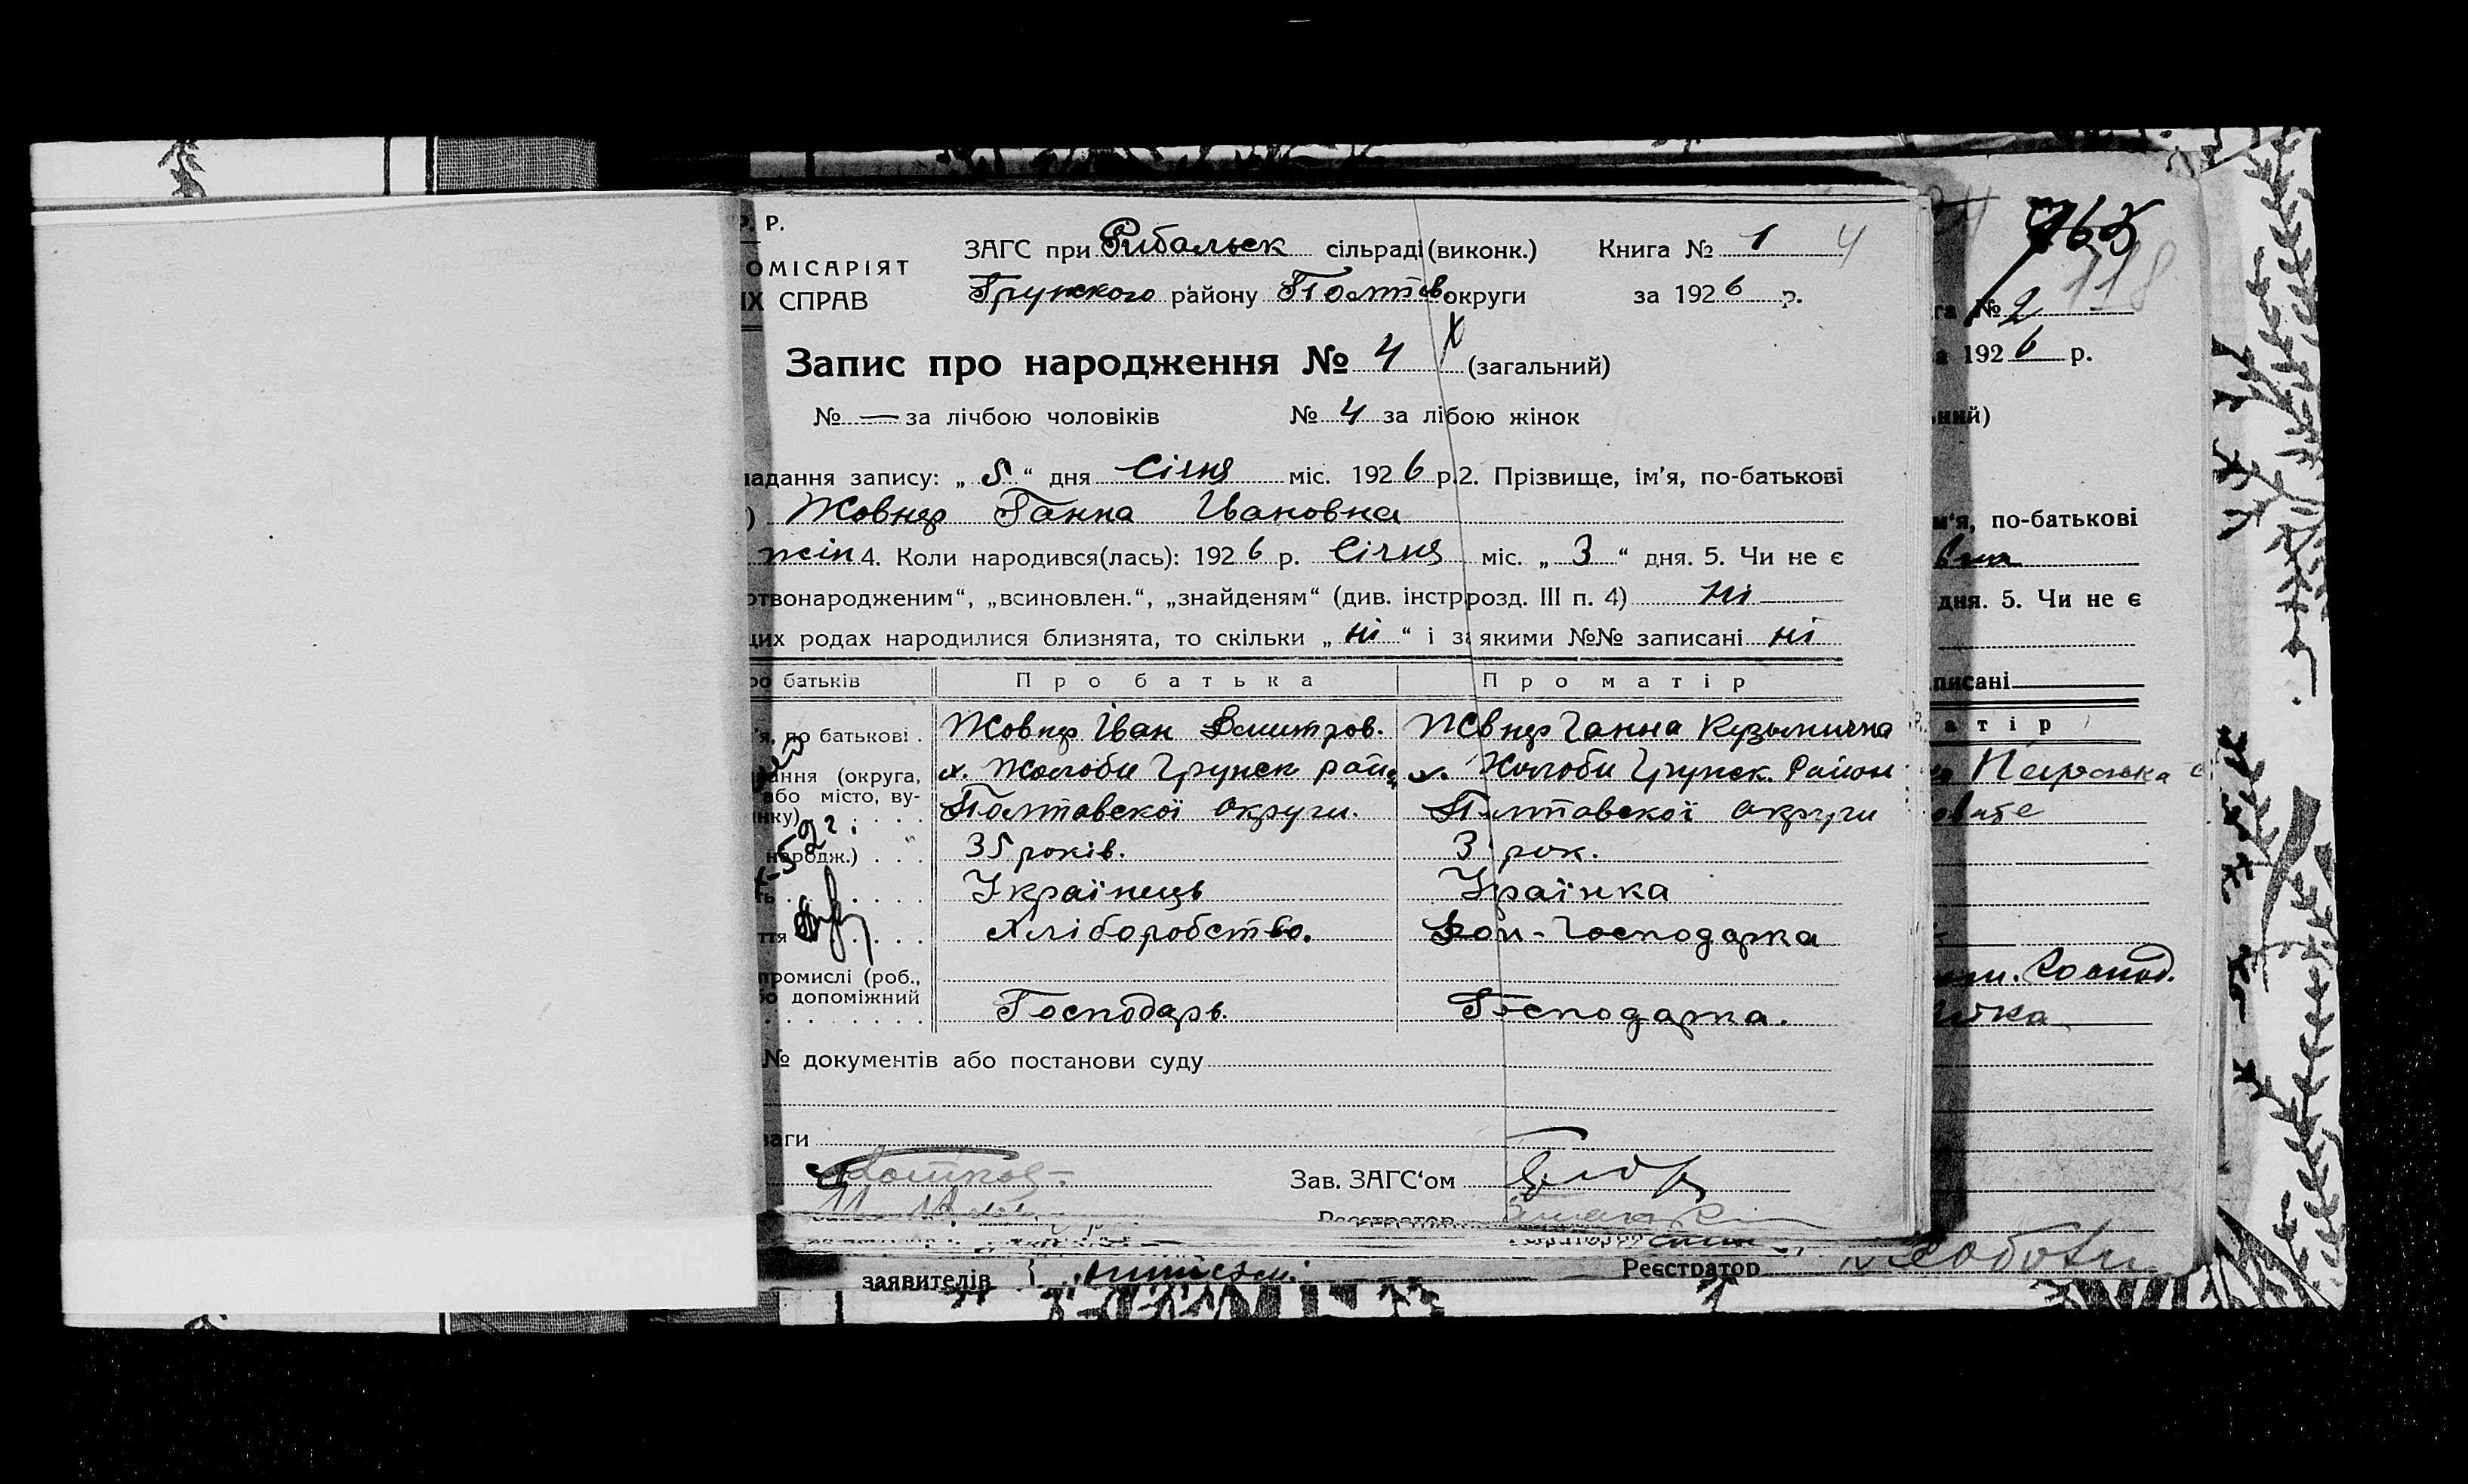 Р. Р.
ЗАГС при Рибальск сільраді (виконк.) Книга № 1 4
ОМІСАРІЯТ
ІХ СПРАВ
Грунського району Полтав округи за 1926 р.
Запис про народження № 4 (загальний)
№ — за лічбою чоловіків № 4 за лібою жінок
ладання запису: „ 5 “ дня Січня міс. 1926 р. 2. Прізвище, ім'я, по-батькові
) Жовнер Ганна Івановна
жін 4. Коли народився(лась): 1926 р. Січня міс. „ 3 “ дня. 5. Чи не є
отвонародженим“, „всиновлен.“, „знайденям“ (див. інстр розд. III п. 4) ні
цих родах народилися близнята, то скільки „ ні “ і за якими №№ записані ні
ро батьків Про батька Про матір
'я, по батькові . Жовнер Іван Дмитров. Жвнер Ганна Кузьмична
вання (округа, х. Жолоби Грунск рай х. Жолоби Грунск. Район
або місто, ву-
инку) . . . . Полтавскої округи. Полтавскої округи
народж.) . . . 35 років. 3 рок.
ть . . . . . . Українець Украінка
ття . . . . Хліборобство. Дом-Господарка
промислі (роб.,
бо допоміжний
. . . . . . . . Господарь. Господарка.
№ документів або постанови суду
ваги
Зав. ЗАГС'ом
Реєстратор
заявителів Реєстратор
765
118
га № 2
а 1926 р.
ьний)
м'я, по-батькові
дня. 5. Чи не є
писані
а т і р
Господ.